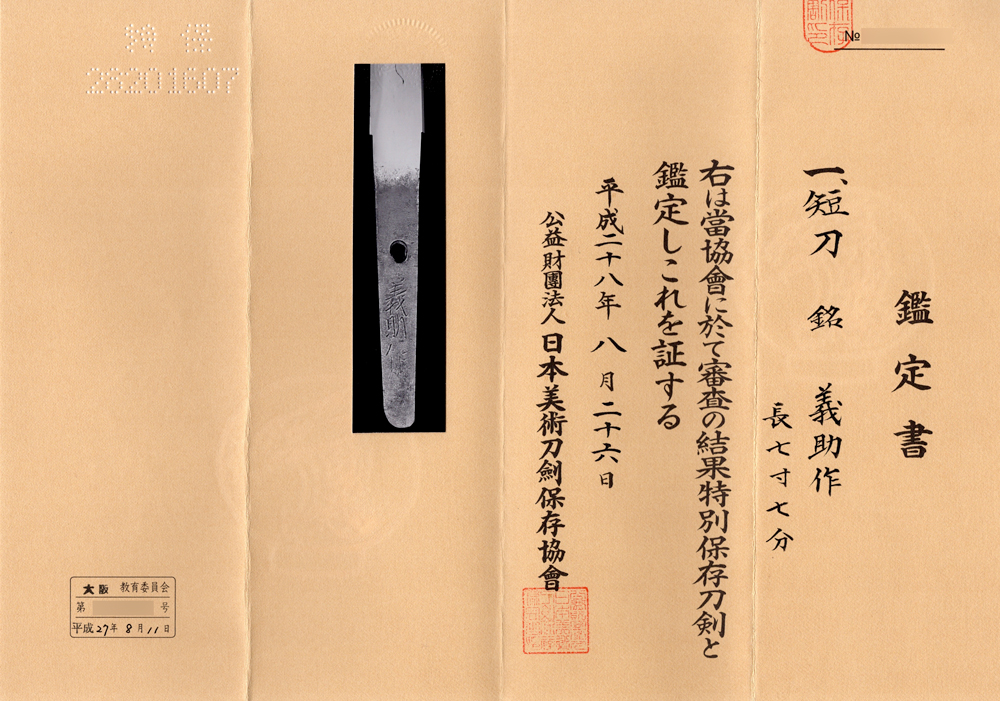 鑑定書
一、短刀 銘 義助作
長七寸七分
右は當協會に於て審査の結果特別保存刀剣と
鑑定しこれを証する
平成二十八年八月二十六日
公益財團法人日本美術刀劍保存協會
No
特保
28201607
義助作
大阪 教育委員会
第 号
平成27年8月11日